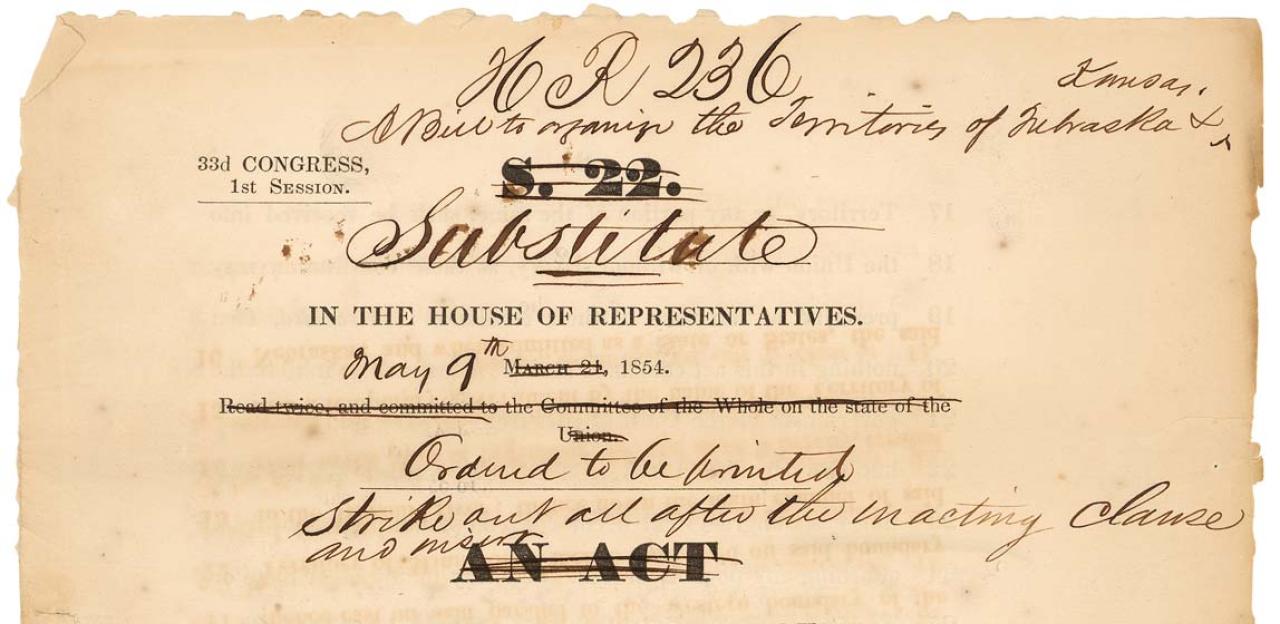 H R 236
Kansas.
A Bill to organize the Territories of Nebraska &
33d CONGRESS,
1st SESSION.
S. 22.
Substitute
IN THE HOUSE OF REPRESENTATIVES.
May 9th MARCH 21, 1854.
Read twice, and committed to the Committee of the Whole on the state of the
Union.
Ordered to be printed
Strike out all after the enacting clause
and insert
AN ACT